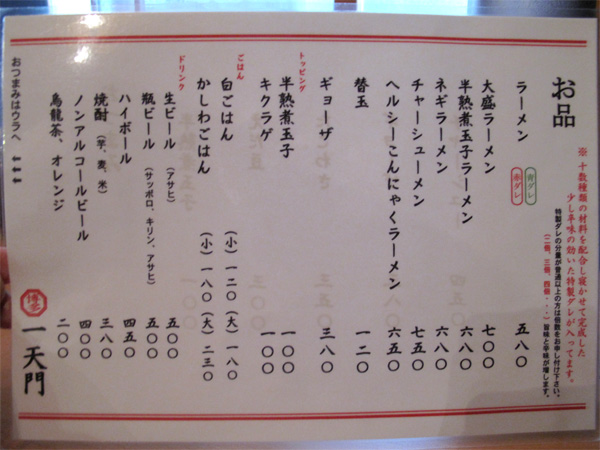 お品
※ 十数種類の材料を配合し寝かせて完成した
少し辛味の効いた特製ダレが入ってます。
特製ダレの分量が普通以上の方は倍数をお申し付け下さい。
(二倍、三倍、四倍・・・)旨味と辛味が増します。
ラーメン 青ダレ 赤ダレ 五八〇
大盛ラーメン 七〇〇
半熟煮玉子ラーメン 六八〇
ネギラーメン 六八〇
チャーシューメン 七五〇
ヘルシーこんにゃくラーメン 六五〇
替玉 一二〇
ギョーザ 三八〇
トッピング
半熟煮玉子 一〇〇
キクラゲ 一〇〇
ごはん
白ごはん (小)一二〇(大)一八〇
かしわごはん (小)一八〇(大)二三〇
ドリンク
生ビール(アサヒ) 五〇〇
瓶ビール(サッポロ、キリン、アサヒ) 五〇〇
ハイボール 四五〇
焼酎(芋、麦、米) 三八〇
ノンアルコールビール 四〇〇
烏龍茶、オレンジ 二〇〇
おつまみはウラへ
博多 一天門